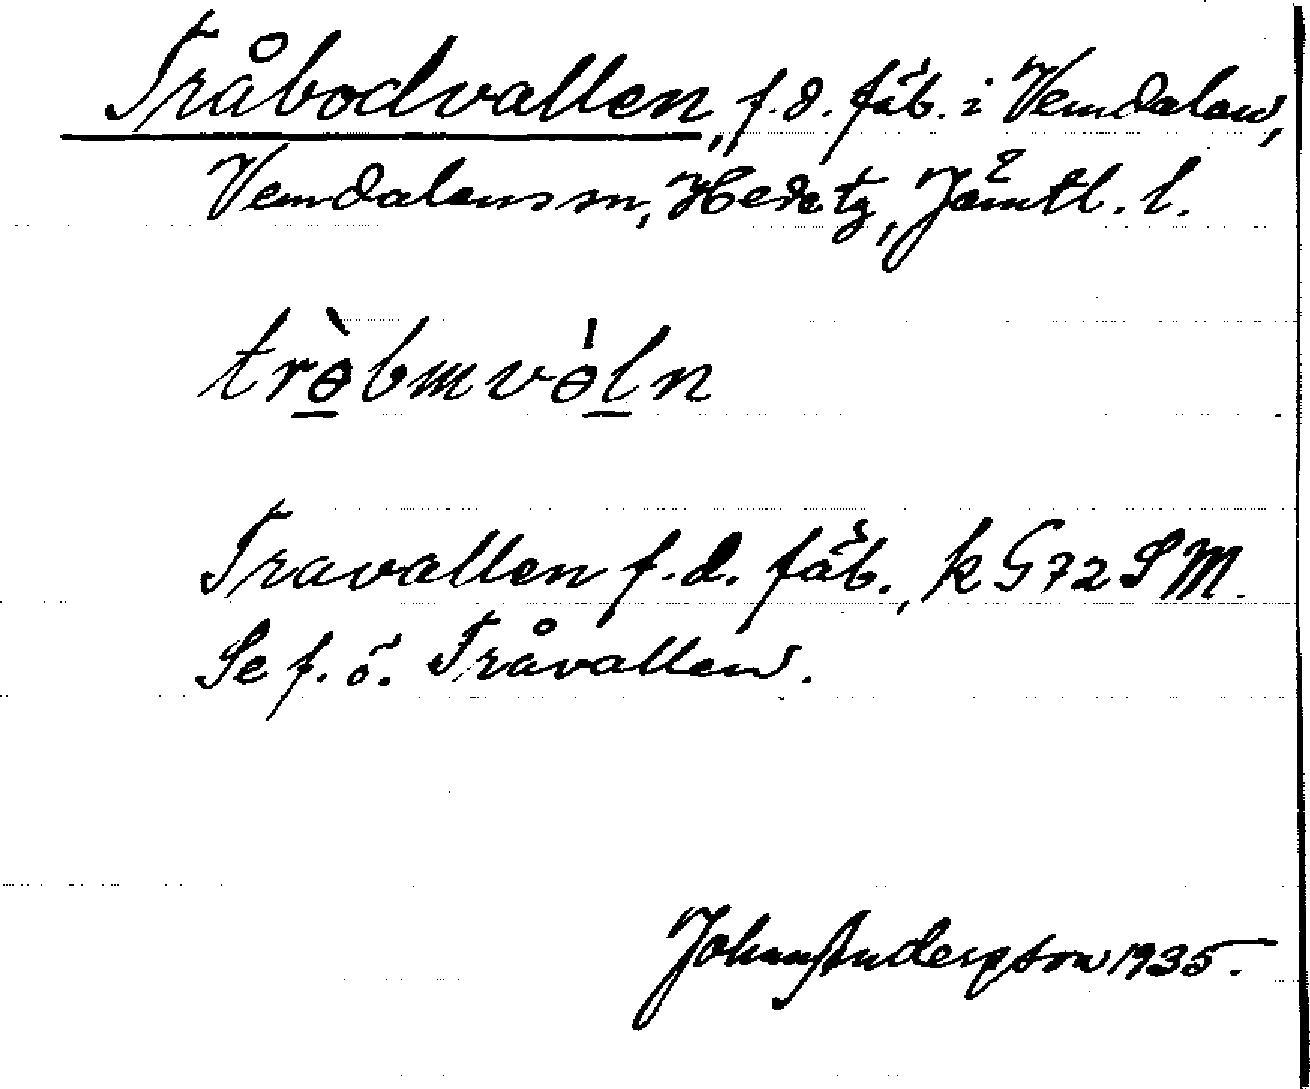 Tråbodvallen, f.d. fäb. i Vemdalen,
Vemdalens sn, Hede tg, Jämtl. l.
trɵ̀bmvɵ̀ln
Travallen f.d. fäb., k G72SM.
Se f. ö. Tråvallen.
Johan Anderzson 1935.